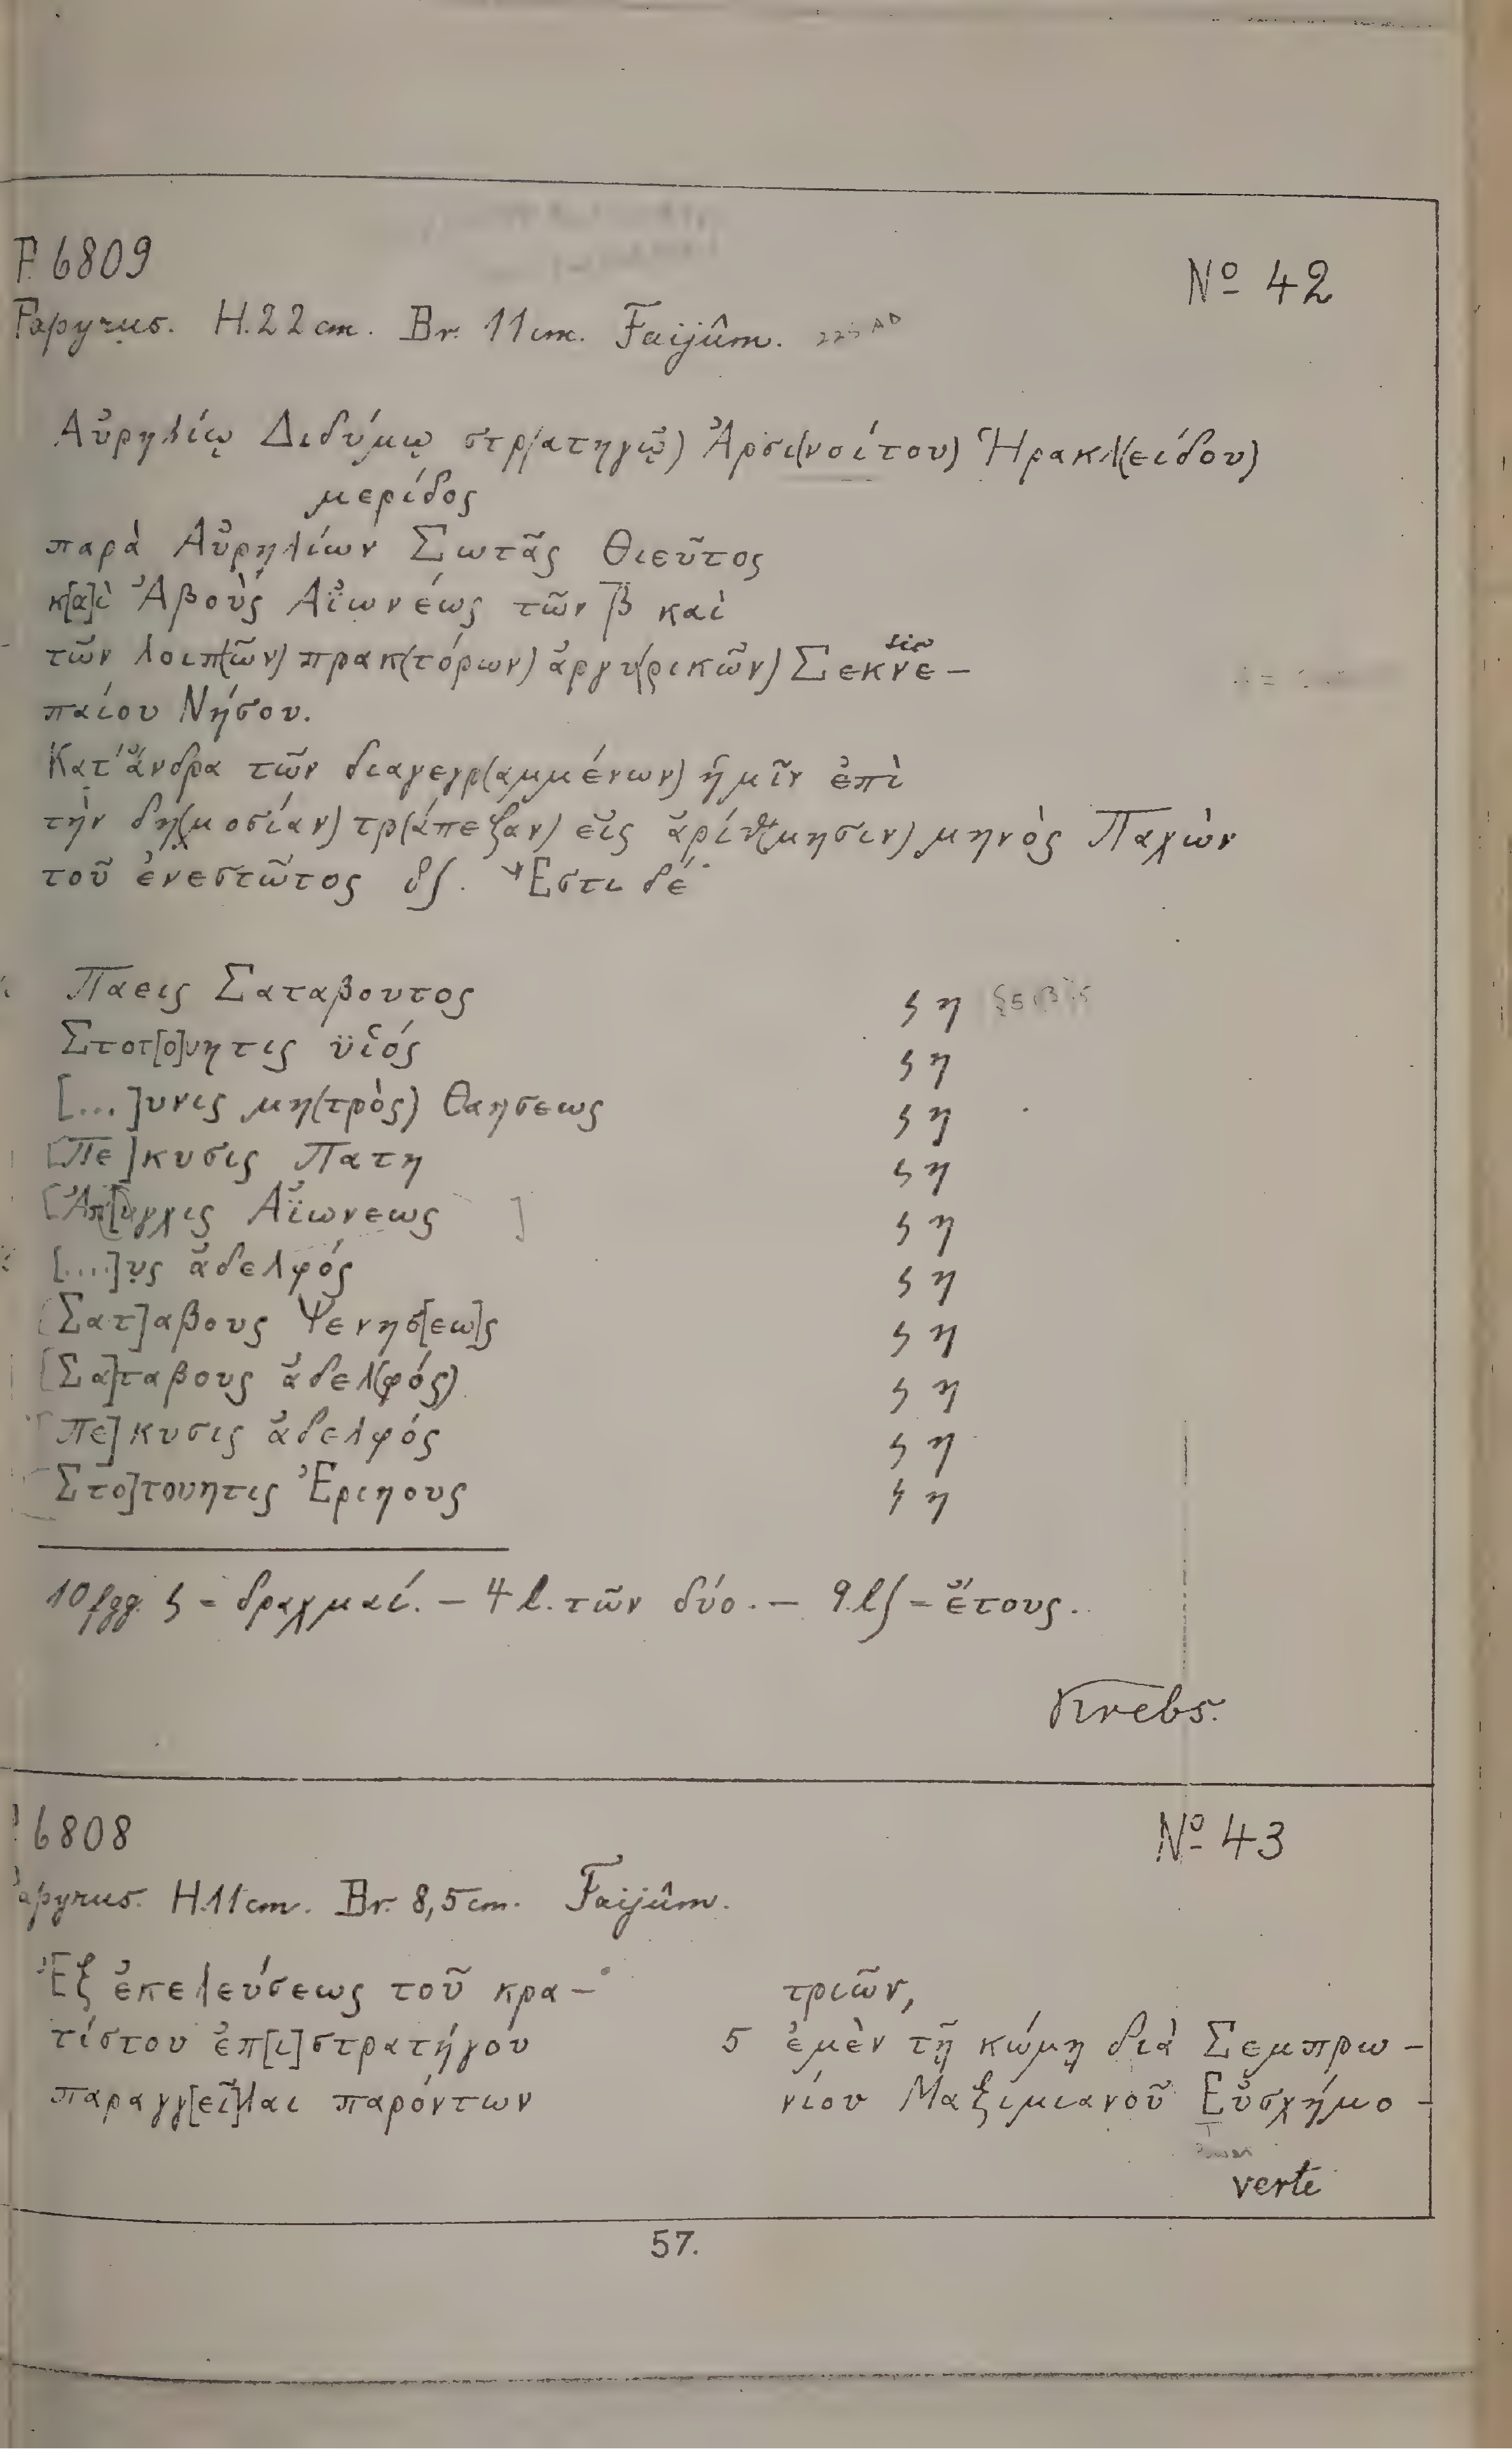 P. 6809
Nº 42
Papyrus. H. 22 cm. Br. 11 cm. Faijûm. 225 AD
Αὐρηλίῳ Διδύμῳ στρ(ατηγῷ) Ἀρσι(νοίτου) Ἡρακλ(είδου)
μερίδος
παρὰ Αὐρηλίων Σωτᾶς Θιεῦτος
κ[α]ὶ Ἀβοὺς Αἰωνέως τῶν β̅ καὶ
τῶν λοιπ(ῶν) πρακ(τόρων) ἀργυ(ρικῶν) Σεκνε-
παίου Νήσου.
Κατ' ἄνδρα τῶν διαγεγρ(αμμένων) ἡμῖν ἐπὶ
τὴν δη(μοσίαν) τρ(άπεζαν) εἰς ἀρίθ(μησιν) μηνὸς Παχὼν
τοῦ ἐνεστῶτος δʃ. Ἔστι δέ·
Παεις Σαταβουτος ϛ η
Στοτ[ο]υητις ϋἱός ϛ η
[...]υνις μη(τρὸς) Θαησεως ϛ η
[Πε]κυσις Πατη ϛ η
[Ἀπ[υγχις Αἰωνεως ] ϛ η
[....]υς ἀδελφός ϛ η
[Σατ]αβους Ψενησ[εω]ς ϛ η
[Σα]ταβους ἀδελ(φός) ϛ η
[Πε]κυσις ἀδελφός ϛ η
[Στο]τουητις Ἐριηους ϛ η
10 fgg. ϛ = δραχμαί. — 4 l. τῶν δύο. — 9 lʃ = ἔτους.
Krebs.
6808
Nº 43
apyrus. H. 11 cm. Br. 8,5 cm. Faijûm.
Ἐξ ἐκελεύσεως τοῦ κρα-
τίστου ἐπ[ι]στρατήγου
παραγγ[εῖ]λαι παρόντων
τριῶν,
5 ἐμὲν τῇ κώμῃ διὰ Σεμπρω-
νίου Μαξιμιανοῦ Εὐσχήμο-
verte
57.